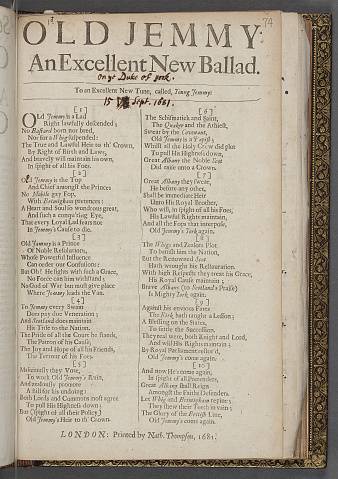 74
OLD JEMMY:
An Excellent New Ballad.
on ye Duke of york.
To an Excellent New Tune, called, Young Jemmy.
15 Sept. 1681.
[1]
OLd Jemmy is a Lad
Right lawfully descended;
No Bastard born nor bred,
Nor for a Whig suspended:
The True and Lawful Heir to th' Crown,
By Right of Birth and Laws,
And bravely will maintain his own,
In spight of all his Foes.
[2]
Old Jemmy is the Top
And Chief amongst the Princes
No Mobile gay Fop,
With Birmingham pretences:
A Heart and Soul so wondrous great,
And such a conqu'ring Eye,
That every Loyal Lad fears not
In Jemmy's Cause to die.
[3]
Old Jemmy is a Prince
Of Noble Resolution,
Whose Powerful Influence
Can order our Confusion:
But Oh! He fights with such a Grace,
No Force can him withstand;
No God of War but must give place
Where Jemmy leads the Van.
[4]
To Jemmy every Swain
Does pay due Veneration;
And Scotland does maintain
His Title to the Nation.
The Pride of all the Court he stands,
The Patron of his Cause,
The Joy and Hope of all his Friends,
The Terrour of his Foes.
[5]
Maliciously they Vote,
To work Old Jemmy's Ruin,
And zealously promote
A Bill for his undoing:
Both Lords and Commons most agree
To pull His Highness down;
But (spight of all their Policy)
Old Jemmy's Heir to th' Crown.
[6]
The Schismatick and Saint,
The Quaker and the Atheist,
Swear by the Covenant,
Old Jemmy is a Papist:
Whilst all the Holy Crew did plot
To pull His Highness down,
Great Albany the Noble Scot
Did raise unto a Crown.
[7]
Great Albany they swear,
He before any other,
Shall be immediate Heir
Unto His Royal Brother,
Who will, in spight of all his Foes,
His Lawful Rights maintain,
And all the Fops that interpose,
Old Jemmy's York again.
[8]
The Whigs and Zealots Plot
To banish him the Nation,
But the Renowned Scot
Hath wrought his Restauration:
With high Respects they treat his Grace,
His Royal Cause maintain;
Brave Albany (to Scotland's Praise)
Is Mighty York again.
[9]
Against his envious Fates
The Kirk hath taught a Lesson;
A Blessing on the States,
To settle the Succession:
They real were, both Knight and Lord,
And will His Rights maintain;
By Royal Parliament restor'd,
Old Jemmy's come again.
[10]
And now He's come again,
In spight of all Pretenders,
Great Albany shall Reign
Amongst the Faiths Defenders.
Let Whig and Birmingham repine,
They shew their Teeth in vain;
The Glory of the British Line,
Old Jemmy's come again.
LONDON: Printed by Nath. Thompson, 1681.